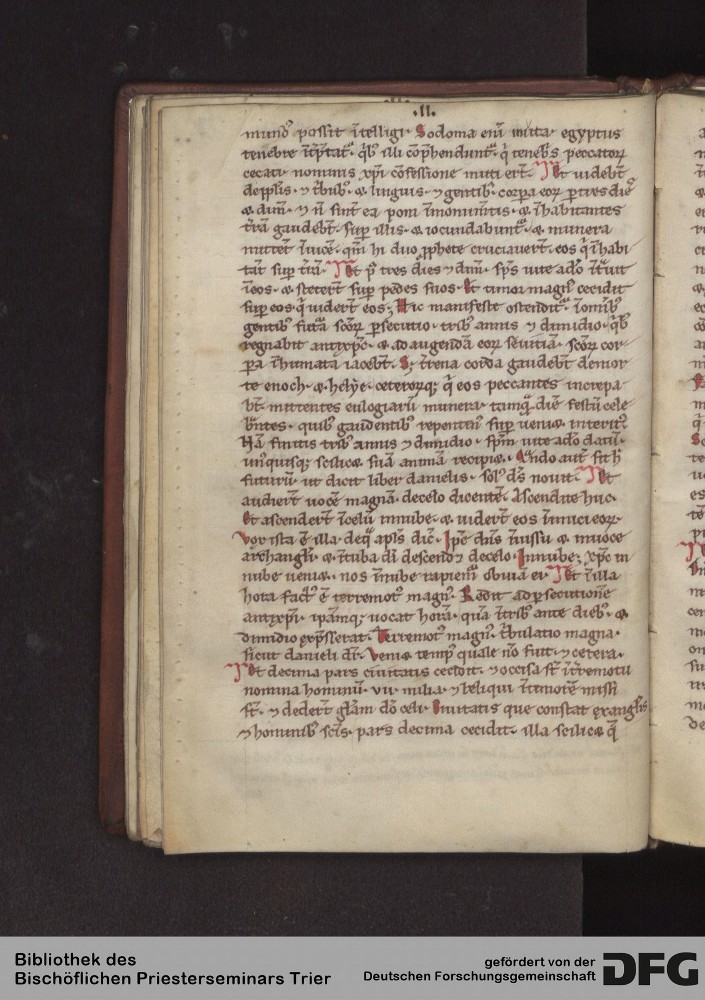 .II.
mund᷒ possit ı̄telligi. Sodoma eni᷒ muta. egyptus
tenebre ı̄t̄p̄tat᷑. q̇b᷒ illi cōp̄hendunt᷑. q̇ teneb̄s peccatoꝝ
cecati nominis xp̄i cōfessione muti er̄t. Et videb̄t
de pp̄lis. ⁊ t̄bub᷒. & linguis. ⁊ gentib᷒. corpa eoꝝ p tres dies
& dimi᷒. ⁊ n̄ sint ea poni ı̄monum̄tis. & ı̄habitantes
t̄rā gaudeb̄t. sup illis. & iocundabunt᷑. & munera
mittēt ı̄vicē. qm̄ hi duo ꝓphete cruciaver̄t. eos q̇ ı̄habi
tāt sup t̄rā. Et p᷒ tres dies ⁊ dimi᷒. sp̄s vite a dō ı̄t᷑uit
ı̄ eos. & steter̄t sup pedes suos. Et timor magn᷒ cecidit
sup eos q̇ vider̄t eos; Hic manifeste ostendit᷑. ı̄ omīb᷒
gentib᷒ futā sc̄oꝝ psecutio. trib᷒ annis ⁊ dimidio. q̇b᷒
regnabit antyxp̄c. & ad augendā eoꝝ sevitiā. sc̄oꝝ cor
pa ı̄humata iaceb̄t. S; t̄rena corda gaudeb̄t de mor
te enoch. & helye. ceteroꝝq;. q̇ eos peccantes increpa
b̄t. mittentes eulogiarū munera. tamq̄ die festū cele
b̄ntes. quib᷒ gaudentib᷒ repentin᷒ sup veniet interit᷒.
Nā finitis trib᷒ annis ⁊ dimidio. sp̄m vite a dō datū.
un᷒quisq; scilicet suā animā recipiet. Q̄ndo aut̄ sit h᷒
futurū. ut dicit liber danielis. sol᷒ dn̄s novit. Et
audier̄t vocē magnā. de celo dicentē. Ascendite huc.
Et ascender̄t ı̄ celū in nube. & vider̄t eos inimici eoꝝ.
Vox ista ē illa. de q̄ apl̄s dic̄. Ip̄e dn̄s ı̄ iussu. & in voce
archangl̄i. & ı̄ tuba dī descendet de celo. In nube; xp̄c in
nube veniet. nos ı̄ nube rapiem᷑ obviā ei. Et ı̄ illa
hora fact᷒ ē terremot᷒ magn᷒. Redit ad psecutionē
antyxp̄i. ipamq; vocat horā. quā ı̄ trib᷒ ante dieb᷒. &
dimidio exp̄sserat. Terremot᷒ magn᷒. t̄bulatio magna.
sicut danieli dr̄. Veniet temp᷒ quale nō fuit. ⁊ cetera.
Et decima pars civitatis cecidit. ⁊ occisa st̄ ı̄ t̄remotu
nomina hominū. vii. milia. ⁊ reliqui ı̄ timorē missi
st̄. ⁊ deder̄t gl̄am dō celi. Civitatis que constat ex angl̄is
⁊ hominib᷒ sc̄is. pars decima cecidit. illa scilicet q̄
Bibliothek des
Bischöflichen Priesterseminars Trier
gefördert von der
Deutschen Forschungsgemeinschaft
DFG